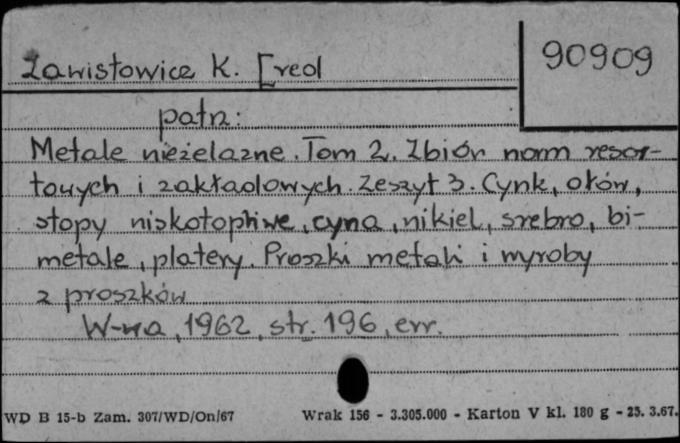 Zawistowicz K. [red
90909
patrz:
Metale nieżelazne. Tom 2. Zbiór norm resor-
towych i zakładowych. Zeszyt 3. Cynk, ołów,
stopy niskotopliwe, cyna, nikiel, srebro, bi-
metale, platery. Proszki metali i wyroby
z proszków
W-wa, 1962, str. 196, err.
WD B 15-b Zam. 307/WD/On/67
Wrak 156 - 3.305.000 - Karton V kl. 180 g - 25. 3.67.